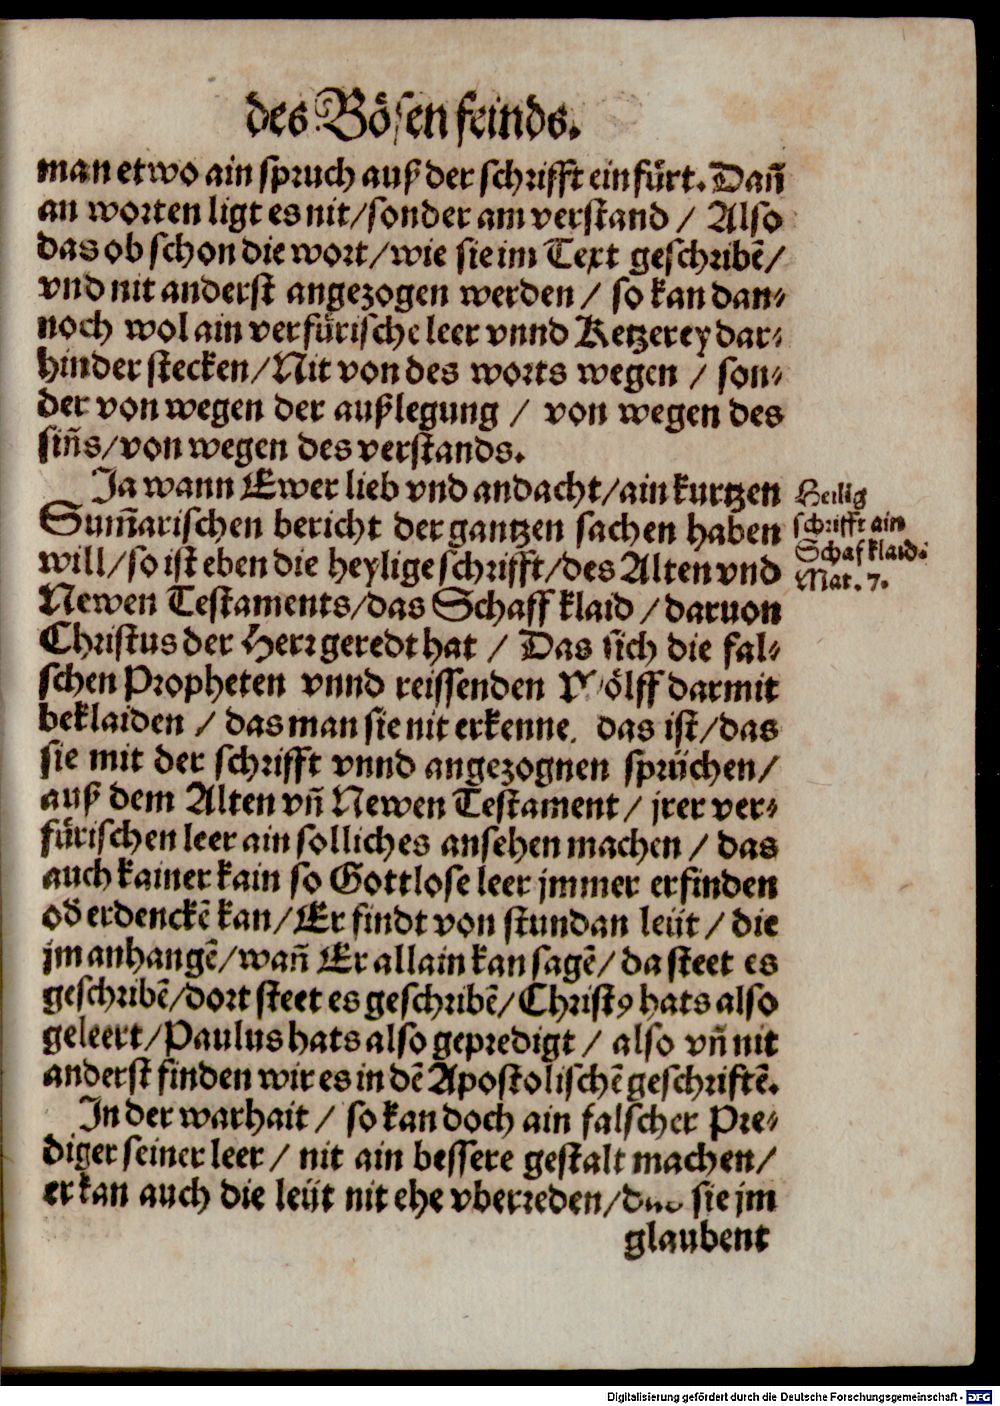 des Bösen feinds.
man etwo ain spruch auß der schrifft einfürt. Dañ
an worten ligt es nit/sonder am verstand / Also
das ob schon die wort/wie sie im Text geschribē/
vnd nit anderst angezogen werden / so kan dan⸗
noch wol ain verfürische leer vnnd Ketzerey dar⸗
hinder stecken/Nit von des worts wegen / son⸗
der von wegen der außlegung / von wegen des
siñs/von wegen des verstands.
Ja wann Ewer lieb vnd andacht/ain kurtzen
Sum̃arischen bericht der gantzen sachen haben
will/so ist eben die heylige schrifft/des Alten vnd
Newen Testaments/das Schaff klaid / daruon
Christus der Herr geredt hat / Das sich die fal⸗
schen Propheten vnnd reissenden Wölff darmit
beklaiden / das man sie nit erkenne, das ist/das
sie mit der schrifft vnnd angezognen sprüchen/
auß dem Alten vñ Newen Testament/ jrer ver⸗
fürischen leer ain solliches ansehen machen / das
auch kainer kain so Gottlose leer jmmer erfinden
od̄ erdenckē kan/Er findt von stundan leüt / die
jm anhangē/wañ Er allain kan sagē/ da steet es
geschribē/dort steet es geschribē/Christꝯ hats also
geleert/Paulus hats also gepredigt / also vñ nit
anderst finden wir es in dē Apostolischē geschriftē.
In der warhait / so kan doch ain falscher Pre⸗
diger seiner leer / nit ain bessere gestalt machen/
er kan auch die leüt nit ehe vberreden/das sie jm
glaubent
Heilig
schrifft ain
Schaf klaid.
Mat. 7.
Digitalisierung gefördert durch die Deutsche Forschungsgemeinschaft - DFG